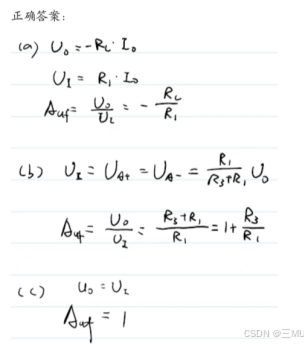 正确答案：
(a) U₀ = -R_L · I₀
U_I = R₁ · I₀
Auf = U₀/U_I = - R_L/R₁
(b) U_I = U_A+ = U_A- = R₁/(R₃+R₁) U₀
Auf = U₀/U_I = (R₃+R₁)/R₁ = 1 + R₃/R₁
(c) u₀ = U_I
Auf = 1
CSDN @三MU